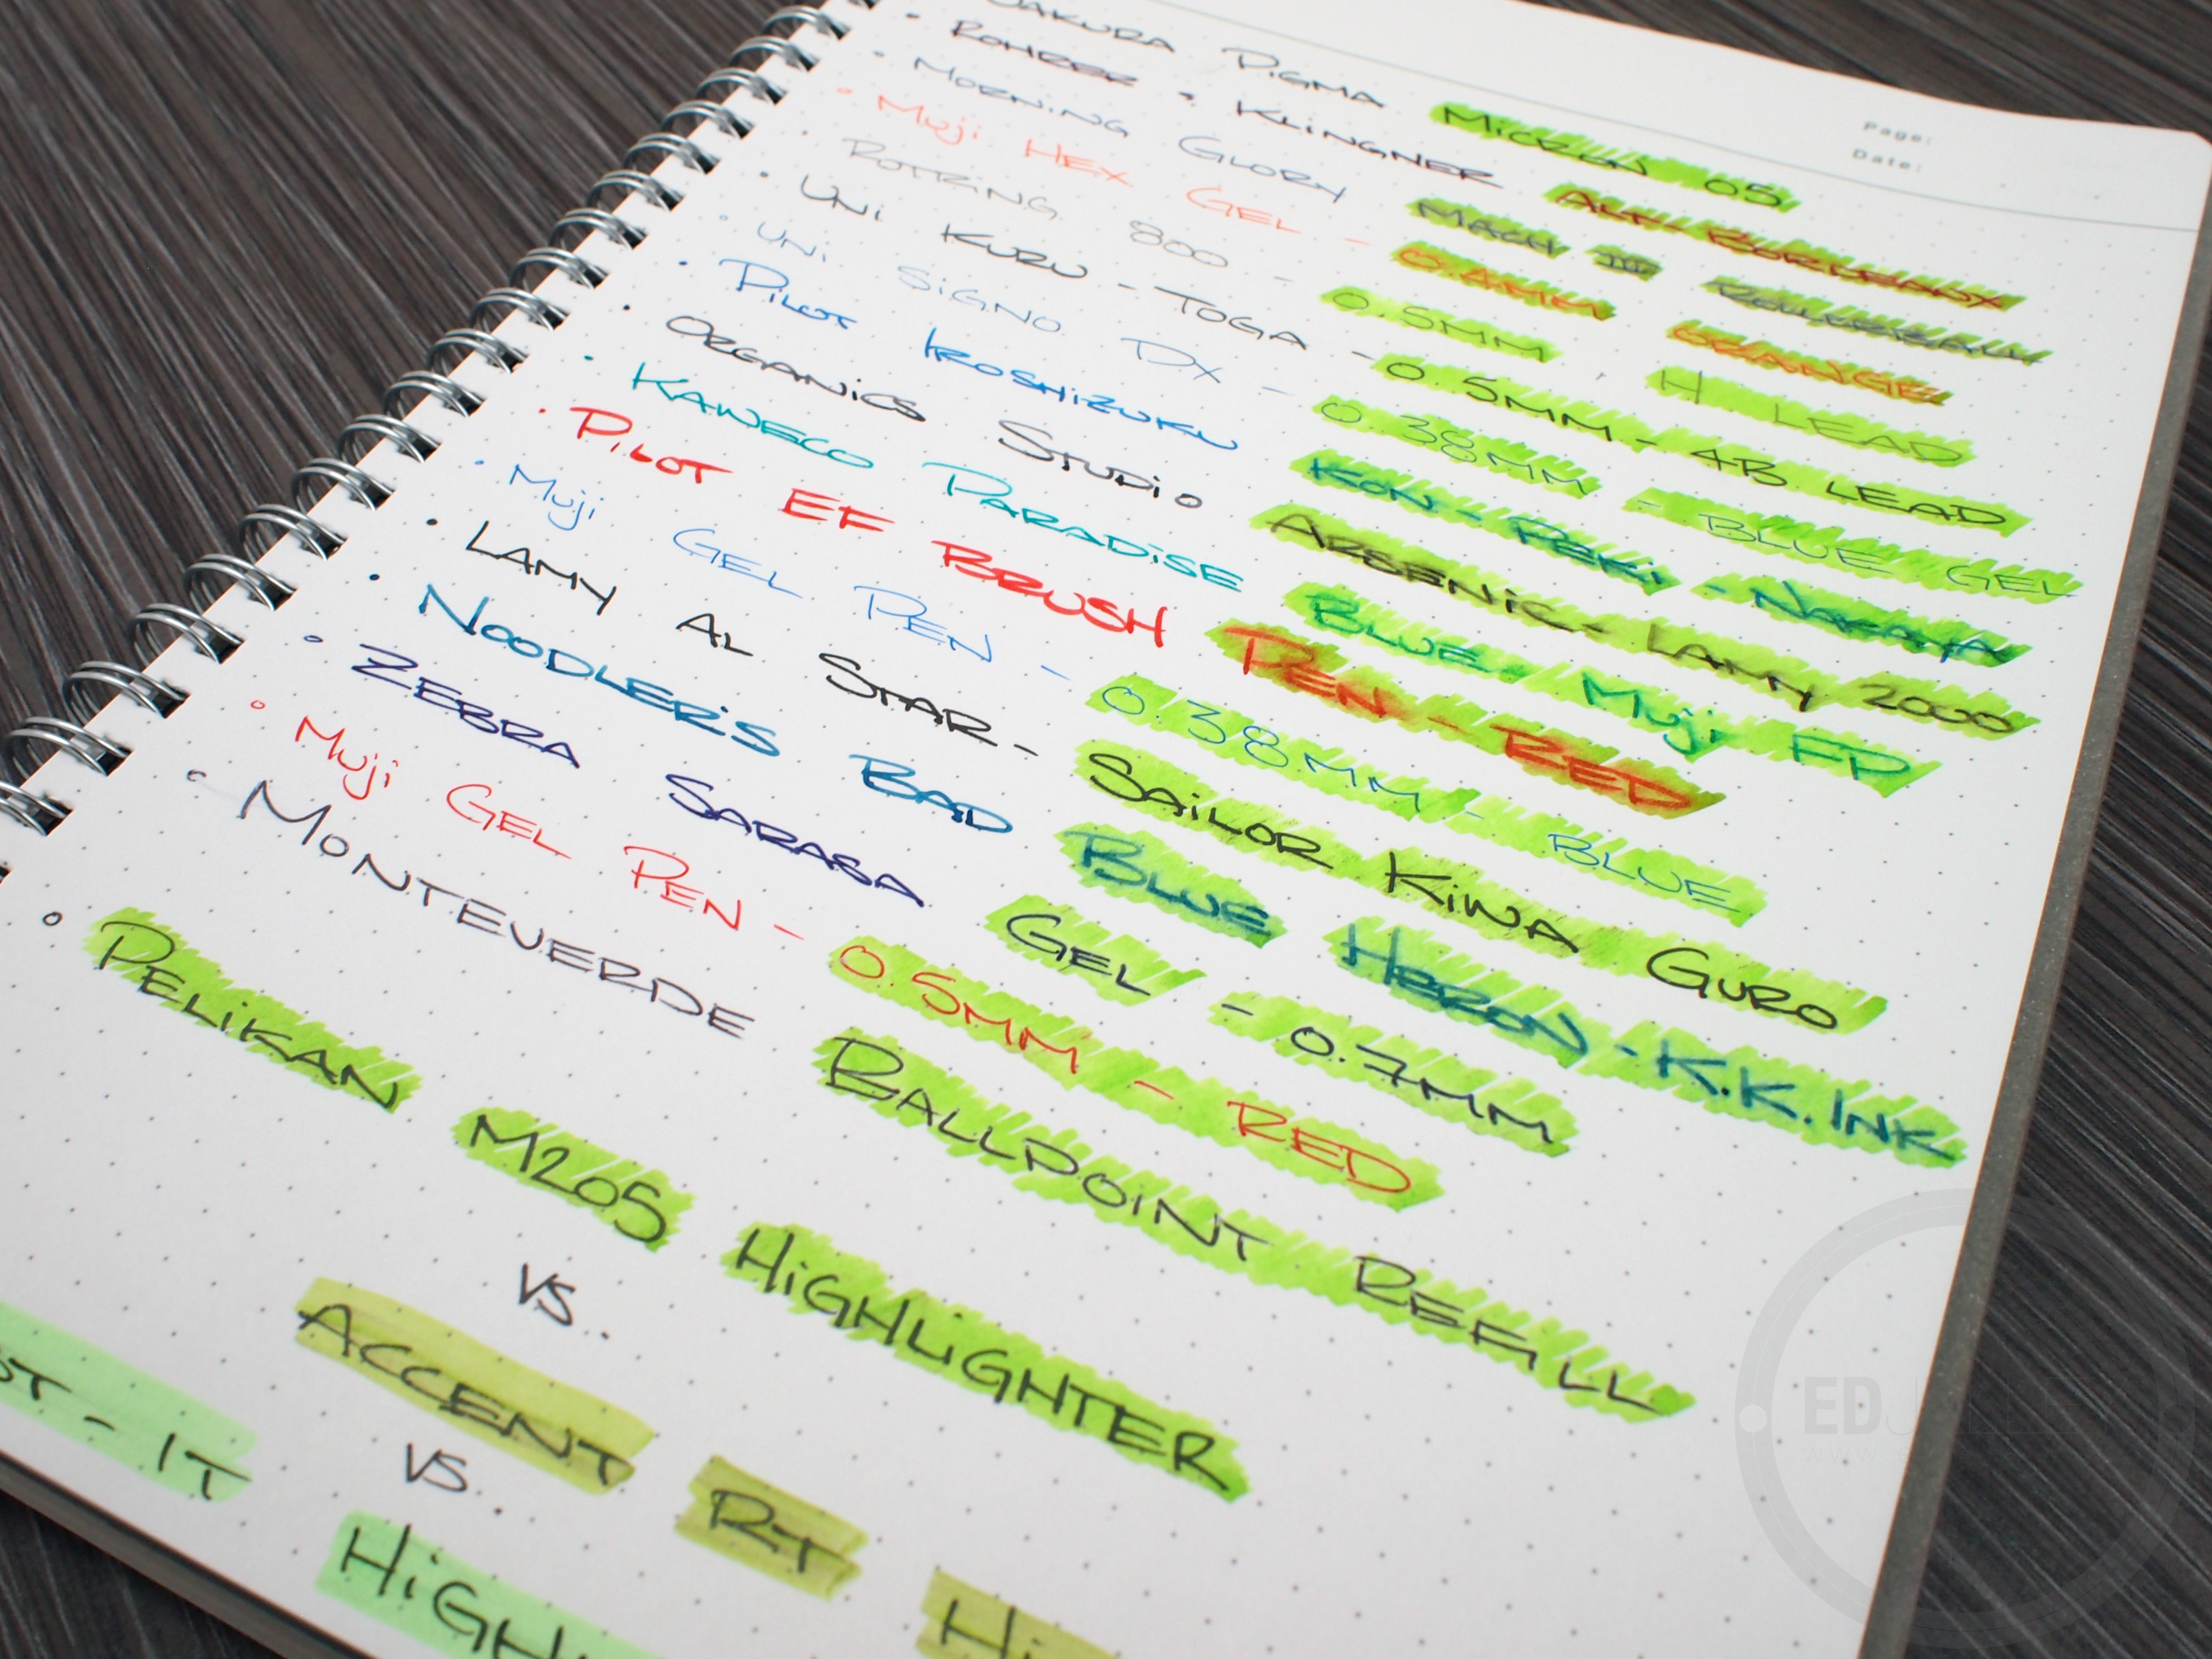 Page:
Date:
SAKURA PIGMA MICRON 05
• ROHRER & KLINGNER ALT-BORDEAUX
• MORNING GLORY MACH III ROLLERBALL
• MUJI HEX GEL - 0.4MM ORANGE
ROTRING 800 - 0.5MM H LEAD
• UNI KURU-TOGA - 0.5MM - 4B LEAD
• UNI SIGNO DX - 0.38MM - BLUE GEL
• PILOT IROSHIZUKU KON-PEKI - NAKAYA
• ORGANICS STUDIO ARSENIC - LAMY 2000
• KAWECO PARADISE BLUE / MUJI FP
• PILOT EF BRUSH PEN - RED
• MUJI GEL PEN - 0.38MM - BLUE
• LAMY AL STAR - SAILOR KIWA GURO
• NOODLER'S BAD BLUE HERON - K.K. INK
• ZEBRA SARASA GEL - 0.7MM
• MUJI GEL PEN - 0.5MM - RED
• MONTEVERDE BALLPOINT REFILL
• PELIKAN M205 HIGHLIGHTER
VS..
ACCENT RT HI
VS..
ST-IT HIGHL
ED